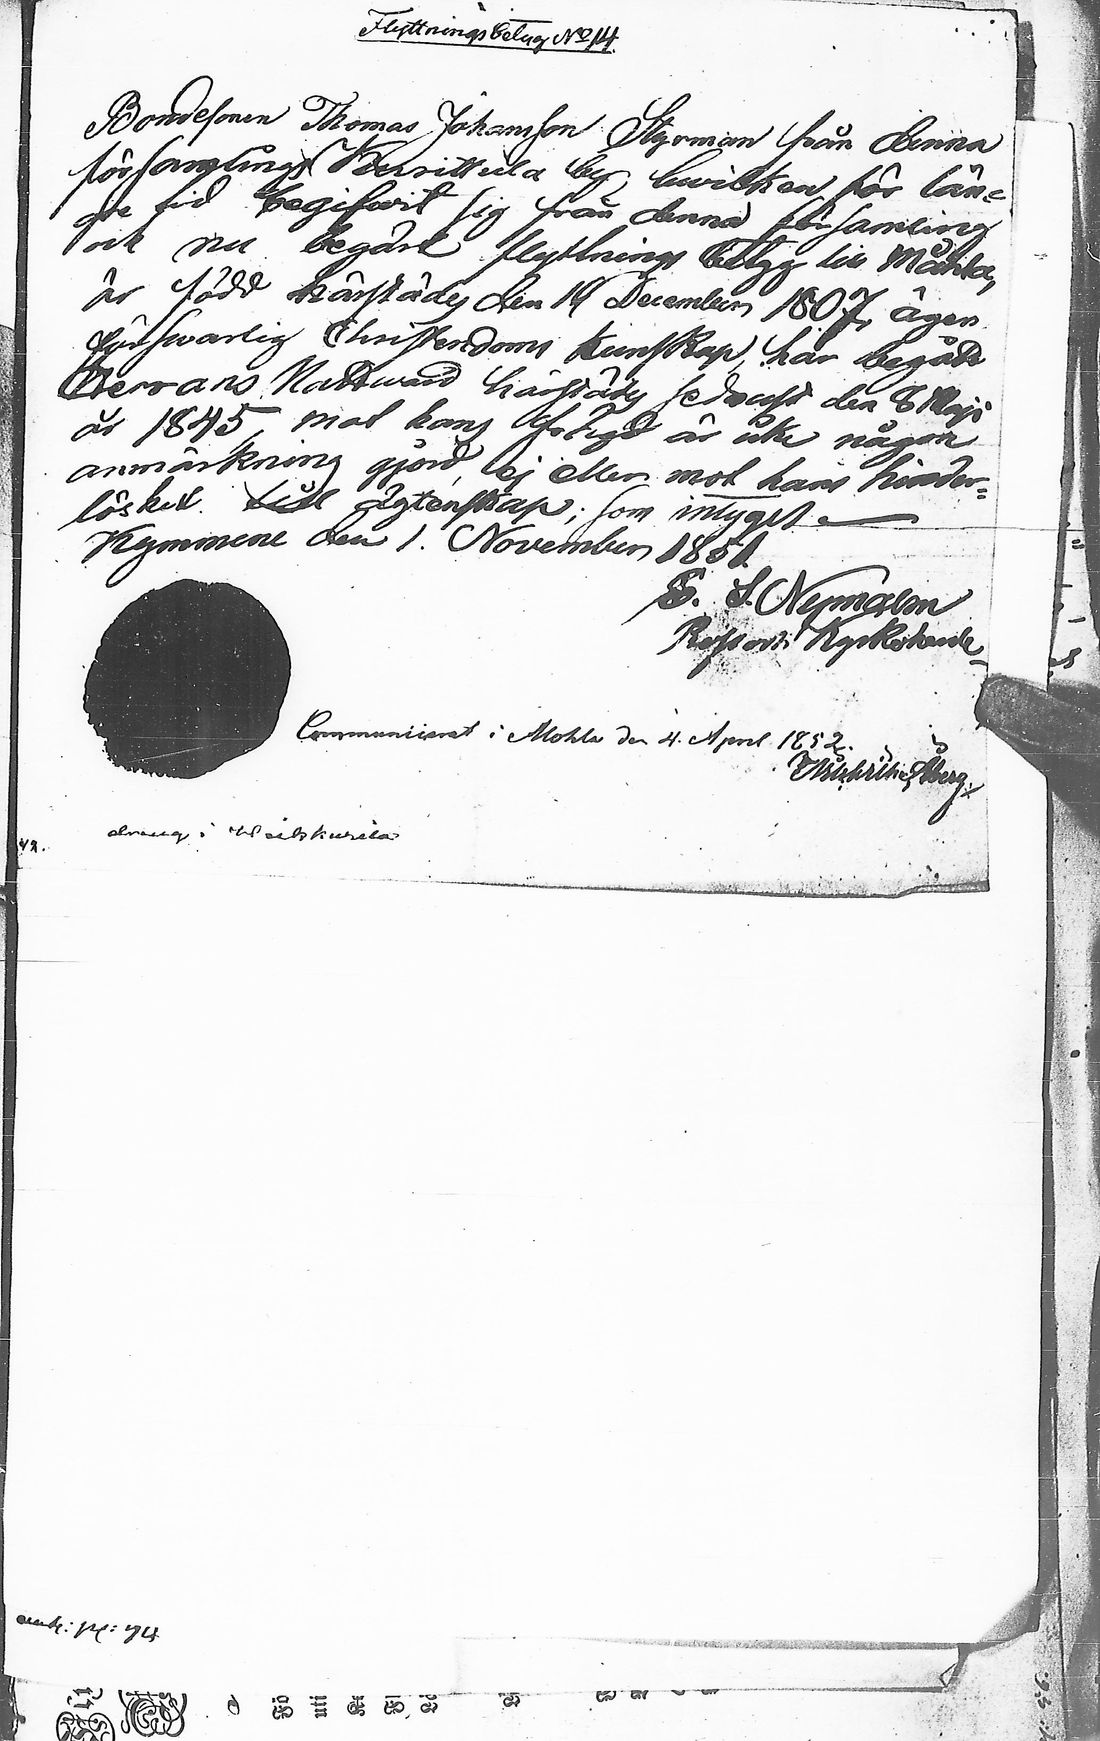 Flyttnings betyg No 14.
Bondesonen Thomas Johansson Styrman från denna
församlings Kurittula by, hvilken för län=
gre tid begifvit sig från denna församling
och nu begärt flyttnings betyg till Mohla,
är född härstädes den 19 December 1807, äger
försvarlig Christendoms Kunskap, har begått
Herrans Nattvard härstädes sednast den 8 Maji
år 1845, mot hans frejd är icke någon
anmärkning gjord, ej eller mot hans hinder=
löshet till ägtenskap; som intygas.
Kymmene den 1. November 1851.
E. S. Nymalm
Communicerat i Mohla den 4. April 1852.
Åberg.
dräng i
42.